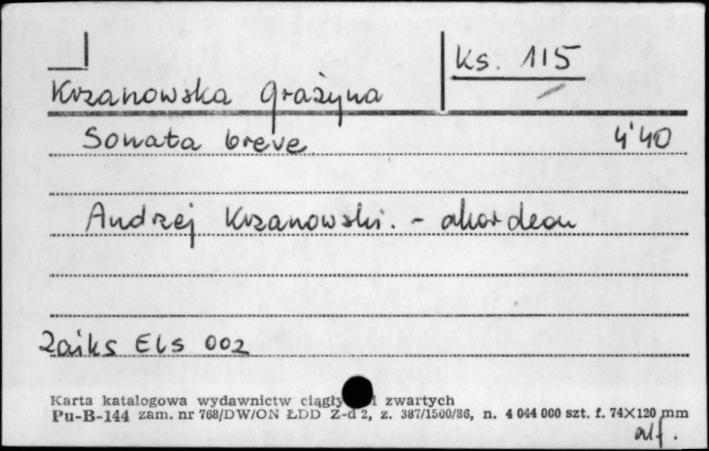 Ks. 115
Krzanowska Grażyna
Sonata breve 4'40
Andrzej Krzanowski. - akordeon
Zaiks Els 002
Karta katalogowa wydawnictw ciągły i zwartych
Pu-B-144 zam. nr 768/DW/ON ŁDD Z-d 2, z. 387/1500/86, n. 4 044 000 szt. f. 74×120 mm
alf.